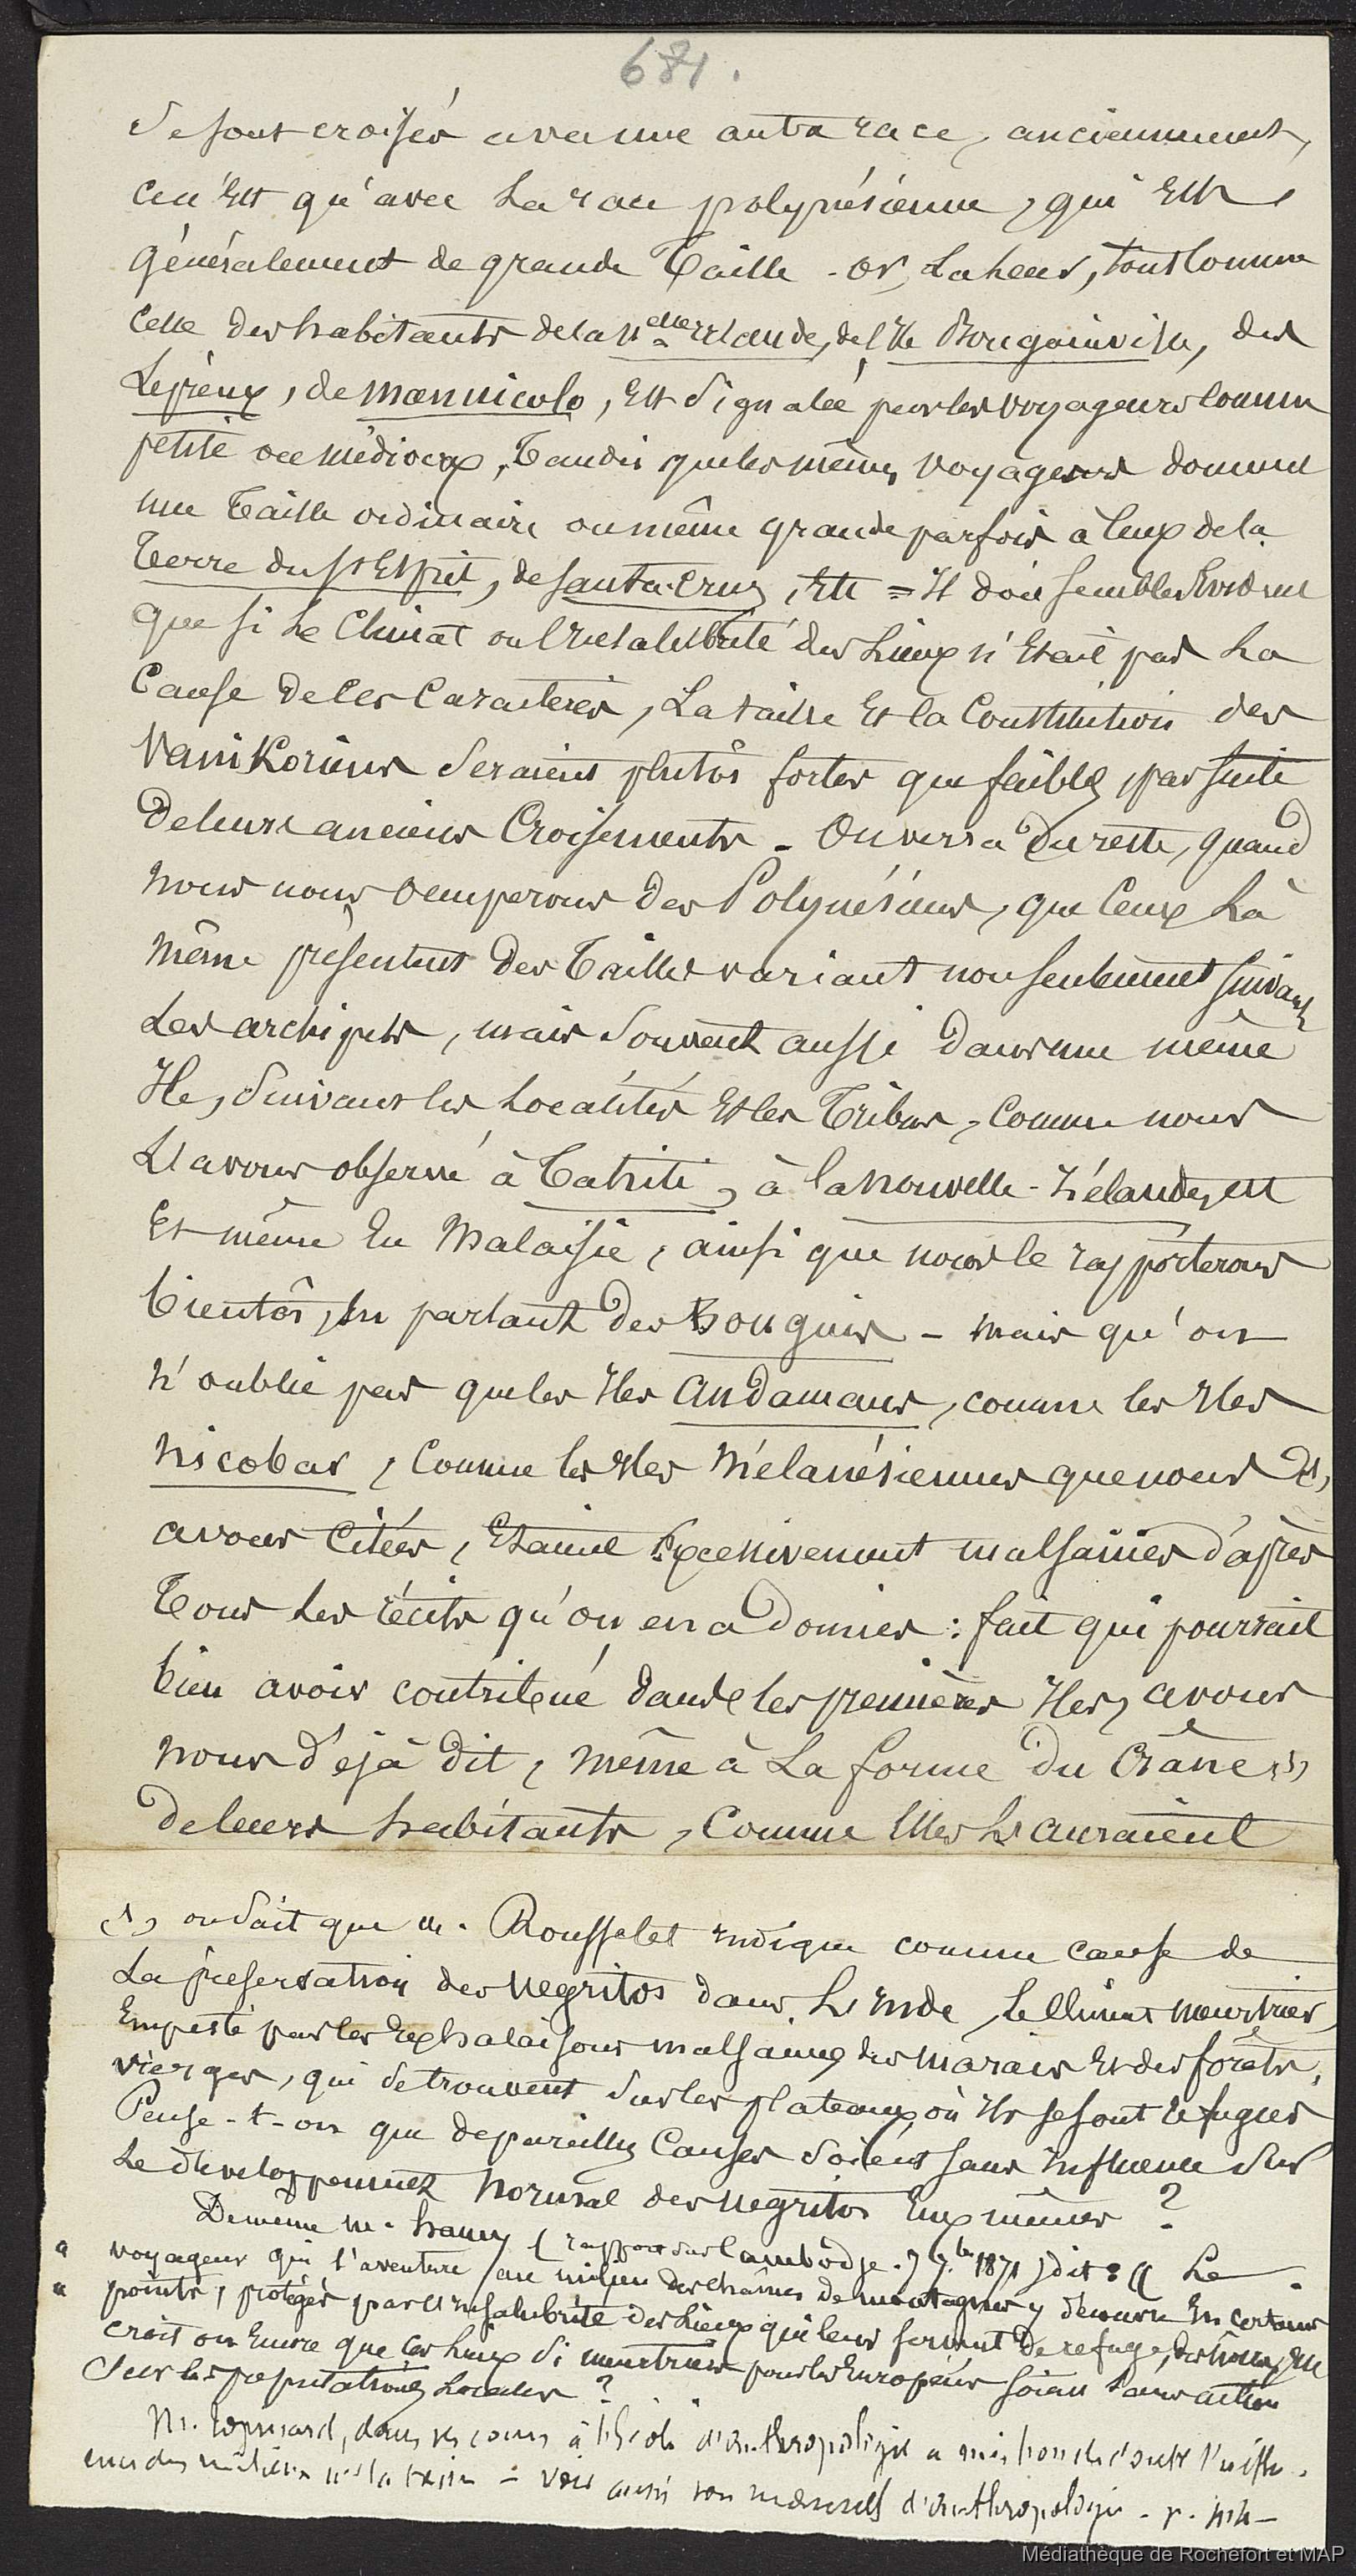 681.
se sont croisés avec une autre race, anciennement,
ce n'est qu'avec la race polynésienne, qui est
généralement de grande taille - or, la leur, tout comme
celle des habitants de la Nelle Irlande, de l'Ile Bougainville, des
Lépreux, de mannicolo, est signalée par les voyageurs comme
petite ou médiocre, tandis que les mêmes voyageurs donnent
une taille ordinaire ou même grande parfois à ceux de la
Terre du St Esprit, de Santa-Cruz, etc = Il doit sembler évident
que si le climat ou l'insalubrité des lieux n'était pas la
cause de ces caractères, la taille et la constitution des
Vanikoriens seraient plutôt fortes que faibles, par suite
de leurs anciens croisements - On verra du reste, quand
nous nous occuperons des Polynésiens, que ceux là
même présentent des tailles variant non seulement suivant
les archipels, mais souvent aussi dans une même
Ile, suivant les localités et les tribus, comme nous
l'avons observé à Tahiti, à la Nouvelle-Zélande, etc
Et même en Malaisie, ainsi que nous le rapporterons
bientôt, en parlant des Bouguis - mais qu'on
n'oublie pas que les Iles Andamans, comme les Iles
Nicobar, comme les Iles Mélanésiennes que nous
avons citées, étaient excessivement malsaines d'après
tous les récits qu'on en a donnés : fait qui pourrait
bien avoir contribué dans les premières Iles, avons
nous déjà dit, même à la forme du crâne (1)
de leurs habitants, comme elles l'auraient
(1) on sait que m. Rousselet indique comme cause de
la préservation des Negritos dans l'Inde, le climat meurtrier,
empesté par les exhalaisons malsaines des marais et des forêts
vierges, qui se trouvent sur les plateaux où ils se sont réfugiés
Pense-t-on que de pareilles causes soient sans influence sur
le développement normal des negritos eux mêmes ?
De même M. hamy (rapport sur Cambodje. 7bre 1871) dit : « Le
« voyageur qui s'aventure au milieu des chaînes de montagnes y découvre en certains
« points, protégés par l'insalubrité des lieux qui leur servent de refuge, des
croit on encore que ces lieux si meurtriers pour les Européens soient sans action
sur les populations locales ?
M. Topinard, dans ses cours à l'école d'anthropologie a mis hors de doute l'influ-
ence des milieux sur la taille - Voir aussi son manuel d'anthropologie - p.
Médiathèque de Rochefort et MAP